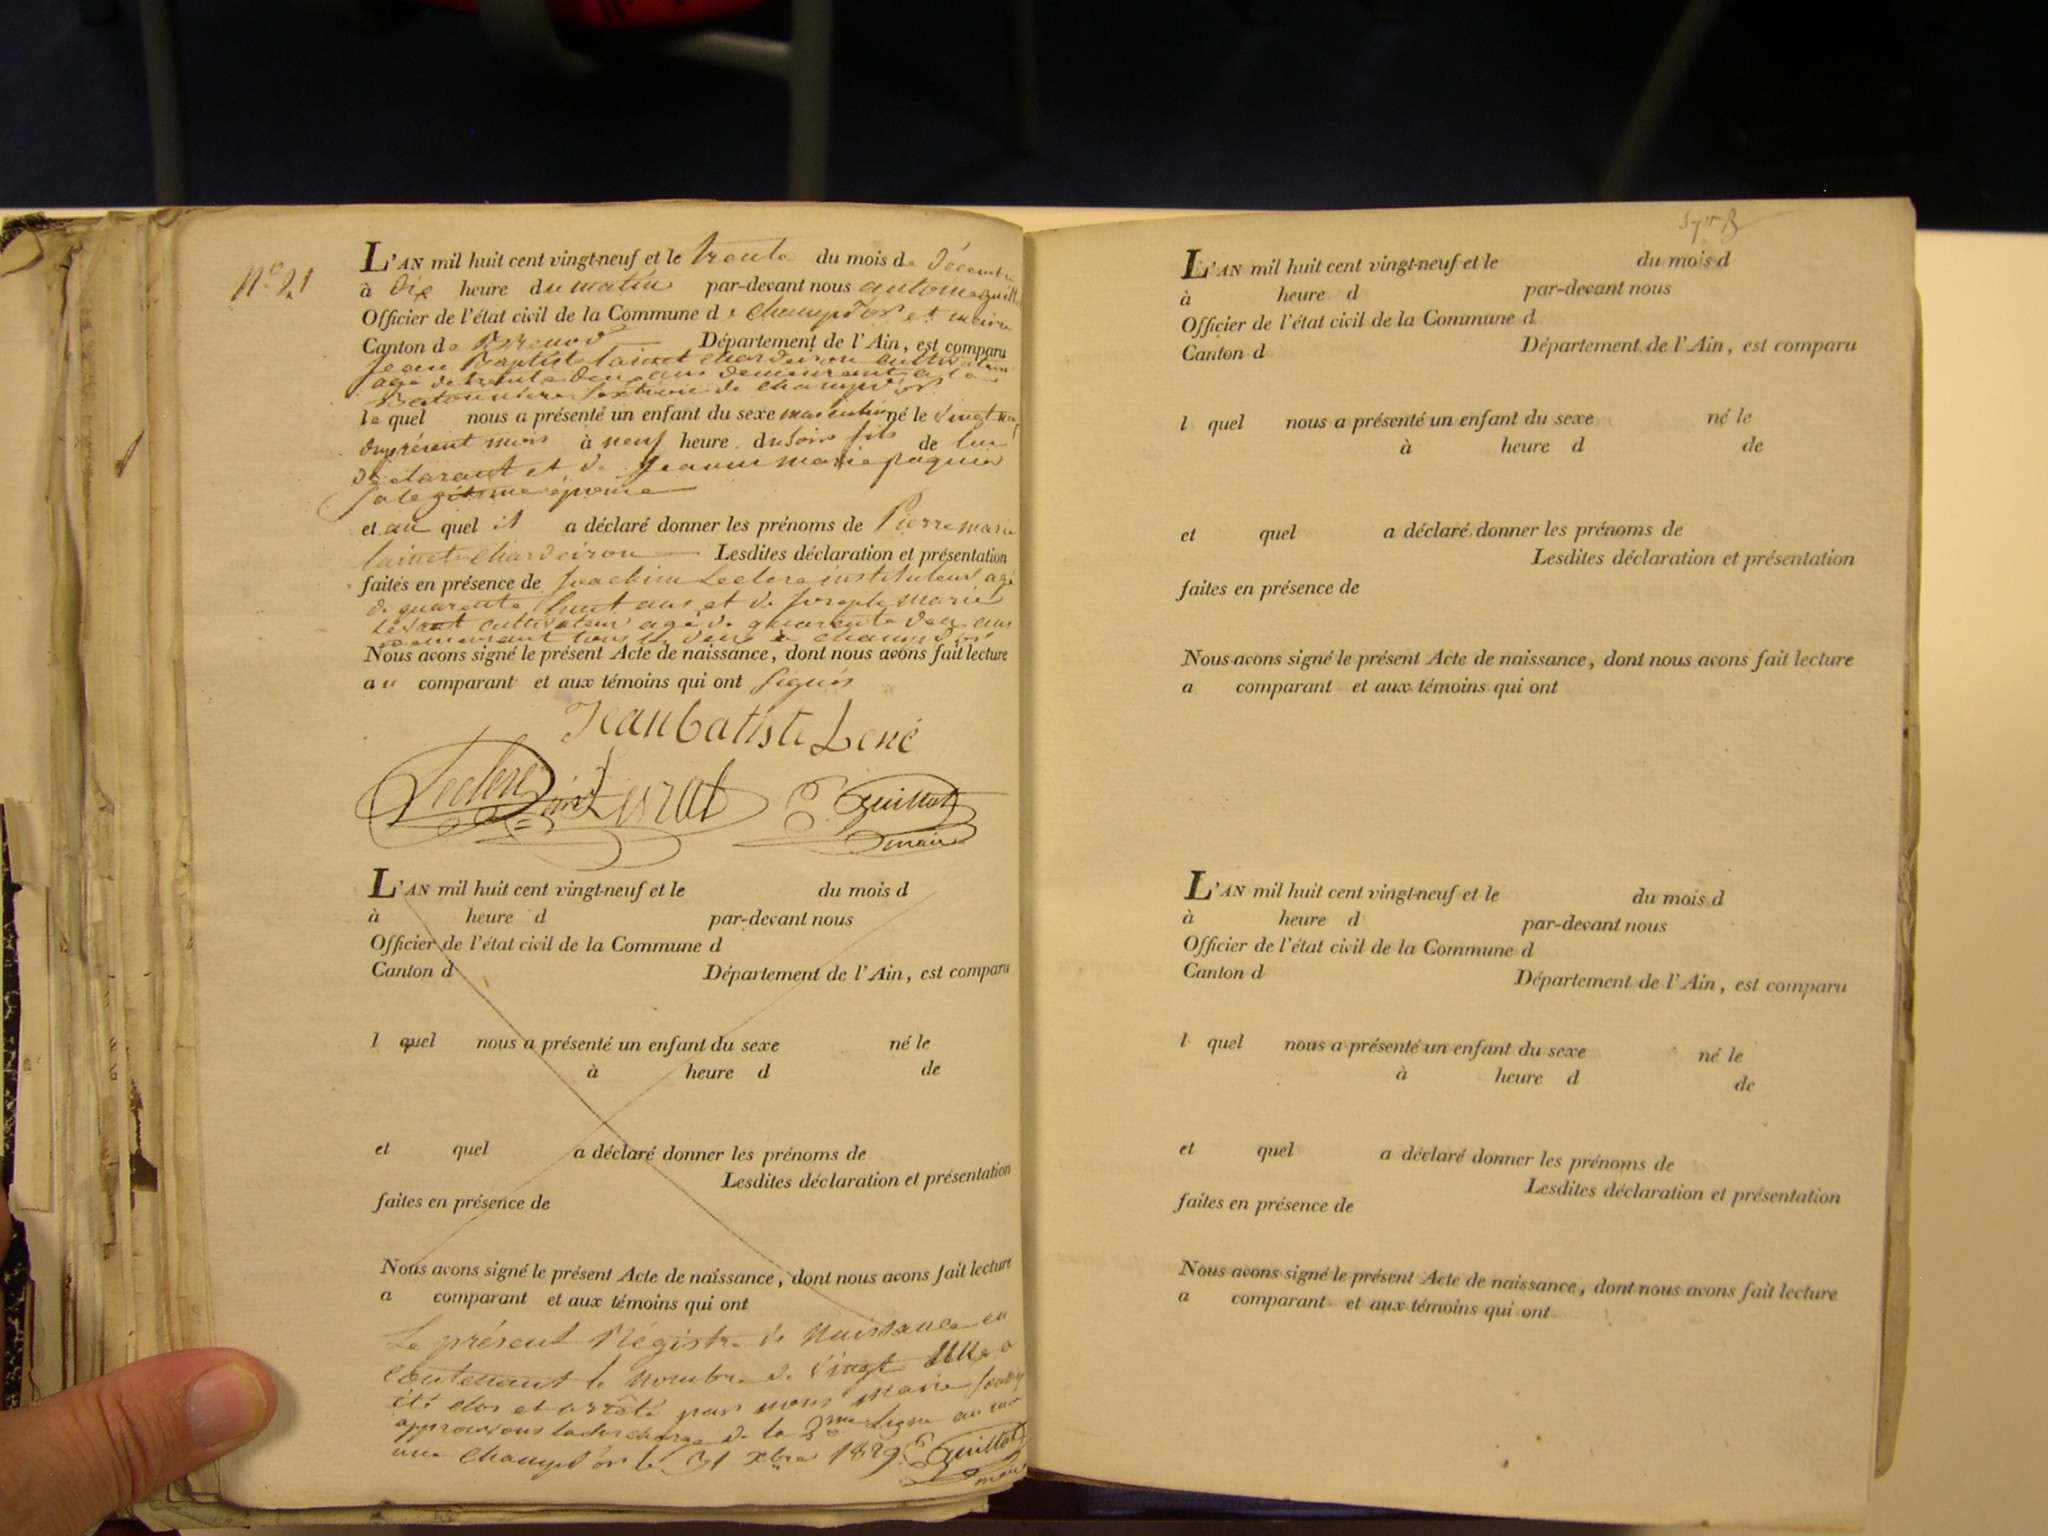 N° 21
L'AN mil huit cent vingt-neuf et le trente du mois de décembre
à dix heure du matin par-devant nous antoine guillot
Officier de l'état civil de la Commune de Champd'or et maire
Canton de Brenod Département de l'Ain, est comparu
jean Baptiste lainet chardeiron cultivateur
agé de trente deux ans demeurant a la
section de champd'or
le quel nous a présenté un enfant du sexe masculin né le vingt neuf
du présent mois à neuf heure du soir fils de lui
déclarant et de jeanne marie paquier
sa legitime épouse
et au quel il a déclaré donner les prénoms de Pierre marie
lainet chardeiron Lesdites déclaration et présentation
faites en présence de joachim Leclerc instituteur agé
de quarante huit ans et de joseph marie
Lévrat cultivateur agé de quarante deux ans
demeurant tous les deux à champd'or
Nous avons signé le présent Acte de naissance, dont nous avons fait lecture
au comparant et aux témoins qui ont signés
Jean batiste Lené
Leclerc Levrat guillot
maire
L'AN mil huit cent vingt-neuf et le du mois d
à heure d par-devant nous
Officier de l'état civil de la Commune d
Canton d Département de l'Ain, est comparu
l quel nous a présenté un enfant du sexe né le
à heure d de
et quel a déclaré donner les prénoms de
Lesdites déclaration et présentation
faites en présence de
Nous avons signé le présent Acte de naissance, dont nous avons fait lecture
a comparant et aux témoins qui ont
Le présent Régistre de Naissance en
contenant le nombre de vingt a
été clos et arrêté par nous Maire
approuvons la surcharge de la 2me Ligne au mot
une Champd'or le 31 xbre 1829 guillot
maire
L'AN mil huit cent vingt-neuf et le du mois d
à heure d par-devant nous
Officier de l'état civil de la Commune d
Canton d Département de l'Ain, est comparu
l quel nous a présenté un enfant du sexe né le
à heure d de
et quel a déclaré donner les prénoms de
Lesdites déclaration et présentation
faites en présence de
Nous avons signé le présent Acte de naissance, dont nous avons fait lecture
a comparant et aux témoins qui ont
L'AN mil huit cent vingt-neuf et le du mois d
à heure d par-devant nous
Officier de l'état civil de la Commune d
Canton d Département de l'Ain, est comparu
l quel nous a présenté un enfant du sexe né le
à heure d de
et quel a déclaré donner les prénoms de
Lesdites déclaration et présentation
faites en présence de
Nous avons signé le présent Acte de naissance, dont nous avons fait lecture
a comparant et aux témoins qui ont